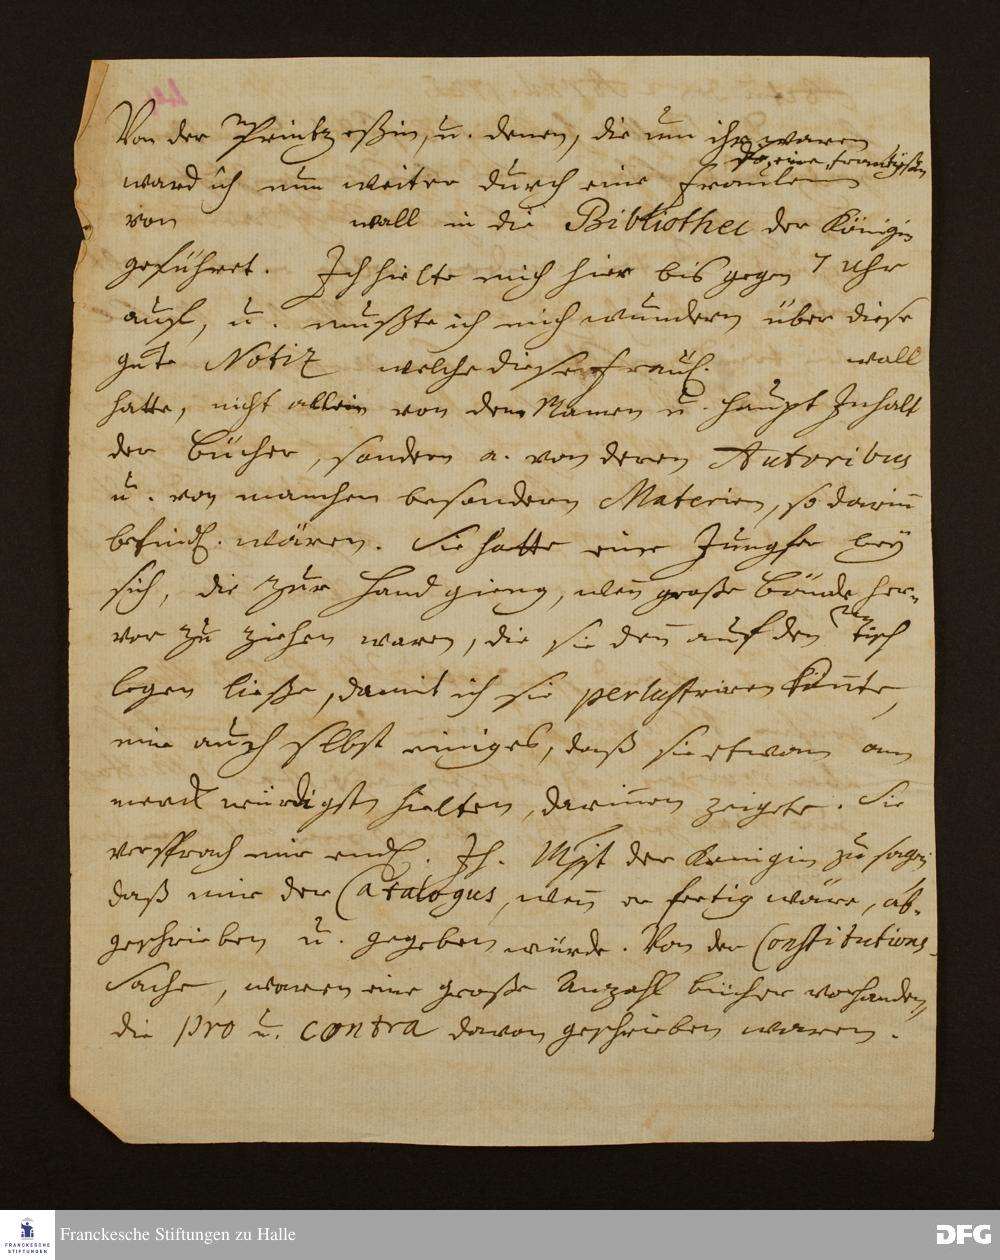 Von der Printzeßin, u. denen, die um ihr waren
ward ich nun weiter durch eine Fraulein
so eine
von wall in die Bibliothec der Königin
geführet. Ich hielte mich hier bis gegen 7 Uhr
auf, u. mußte ich mich wundern über diese
gute Notiz welche diese Fräul. wall
hatte, nicht allein von dem Namen u. Haupt Inhalt
der Bücher, sondern a. von deren Autoribus
u. von manchen besondern Materien, so darinn
befindl. wären. Sie hatte eine Jungfer bey
sich, die zur Hand gieng, wenn große Bände her-
vor zu ziehen waren, die sie denn auf den Tisch
legen ließe, damit ich sie perlustriren könnte,
mir auch selbst einiges, daß sie etwan am
merckwürdigsten hielten, darinnen zeigete. Sie
versprach mir endl. Ih. Mjst der Königin zu sagen
daß mir der Catalogus, wenn er fertig wäre, ab-
geschrieben u. gegeben würde. Von der Constitutions-
Sache, waren eine große Anzahl Bücher vorhanden,
die pro u. contra davon geschrieben waren.
FRANCKESCHE STIFTUNGEN
Franckesche Stiftungen zu Halle
DFG